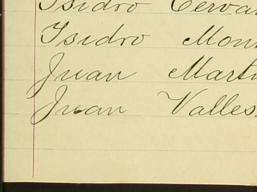 Isidro Cerva
Isidro Mon
Juan Mart
Juan Valles